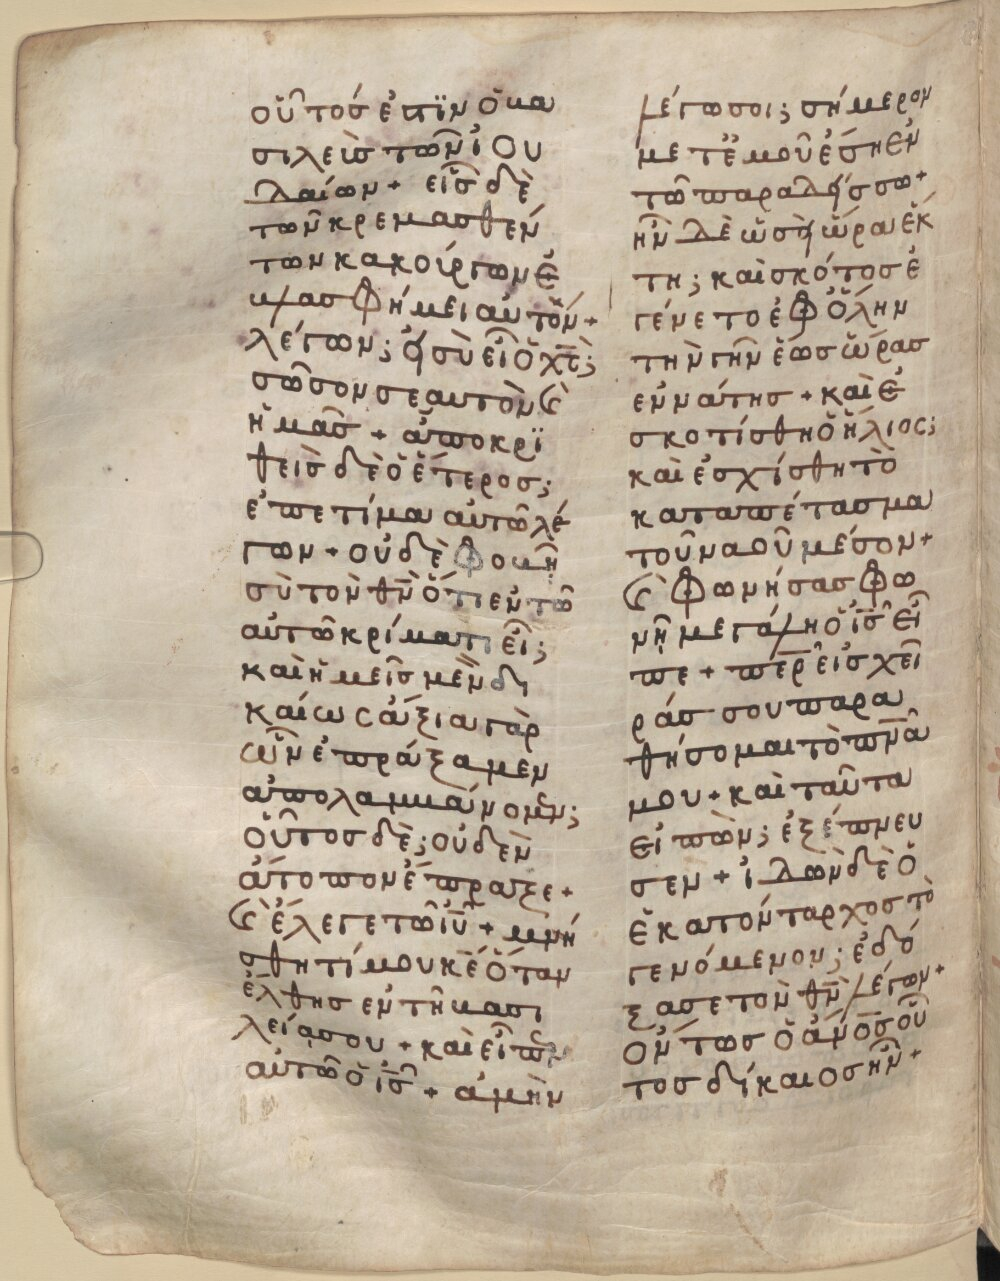 οὗτός ἐστϊν ὁ βα
σιλεὺς τῶν ἰου
δαίων + εἷς δὲ
τῶν κρεμασθέν
των κακούργων ἐ
βλασφήμει αὐτόν +
λέγων; εἰ σὺ εἶ ὁ χς̅;
σῶσον σεαυτὸν ϗ
ἡμᾶς + ἀποκρϊ
θεὶς δὲ ὁ ἕτερος;
ἐπετίμα αὐτῶ λέ
γων + οὐδὲ φοβῆ
σὺ τὸν θν̅ ὅτι ἐν τῶ
αὐτῶ κρίματι εἶ;
καὶ ἡμεῖς μὲν δι
καίως ἄξια γὰρ
ὧν ἐπράξαμεν
ἀπολαμβάνομεν;
οὗτος δὲ; οὐδὲν
ἄτοπον ἔπραξε +
ϗ ἔλεγε τῶ ιυ̅ + μνή
σθητί μου κε̅ ὅταν
ἔλθης ἐν τῆ βασι
λεία σου + καὶ εἶπεν
αὐτῶ ὁ ις̅ + ἀμὴν
λέγω σοι; σήμερον
μετ' ἐμοῦ ἔση ἐν
τῶ παραδείσω +
ἦν δὲ ὡσεὶ ὥρα ἕκ
τη; καὶ σκότος ἐ
γένετο ἐφ' ὅλην
τὴν γῆν ἕως ὥρας
ἐννάτης + καὶ ἐ
σκοτίσθη ὁ ἥλιος;
καὶ ἐσχίσθη τὸ
καταπέτασμα
τοῦ ναοῦ μέσον +
ϗ φωνήσας φω
νῆ μεγάλη ὁ ις̅ εἶ
πε + περ̅ εἰς χεῖ
ράς σου παρα
θήσομαι τὸ πνα̅
μου + καὶ ταῦτα
εἰπὼν; ἐξέπνευ
σεν + ἰδὼν δὲ ὁ
ἑκατόνταρχος τὸ
γενόμενον; ἐδό
ξασε τὸν θν̅ λέγων +
ὄντως ὁ ἀνο̅ς οὗ
τος δίκαιος ἦν +